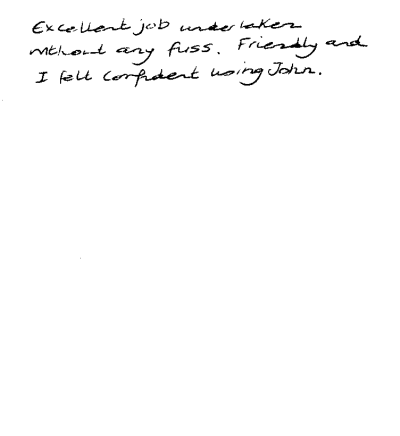 Excellent job undertaken
without any fuss. Friendly and
I felt confident using John.